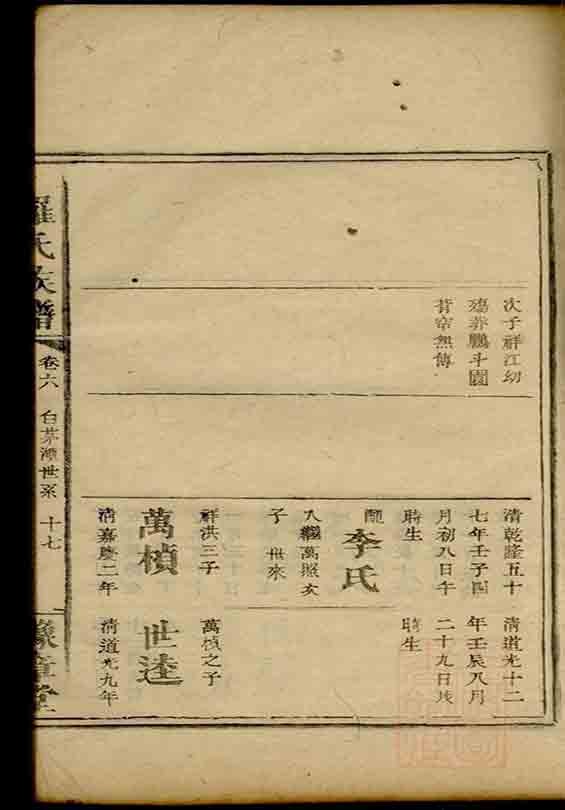 次子祥江幼
殤葬鵬斗園
背帘無傳
清乾隆五十
七年壬子四
月初八日午
時生
配
李氏
入繼萬照次
子世來
祥洪三子
萬楨
清嘉慶二年
清道光十二
年壬辰八月
二十九日戌
時生
萬楨之子
世逵
清道光九年
羅氏族譜
卷六
白茅潭世系
十七
豫章堂